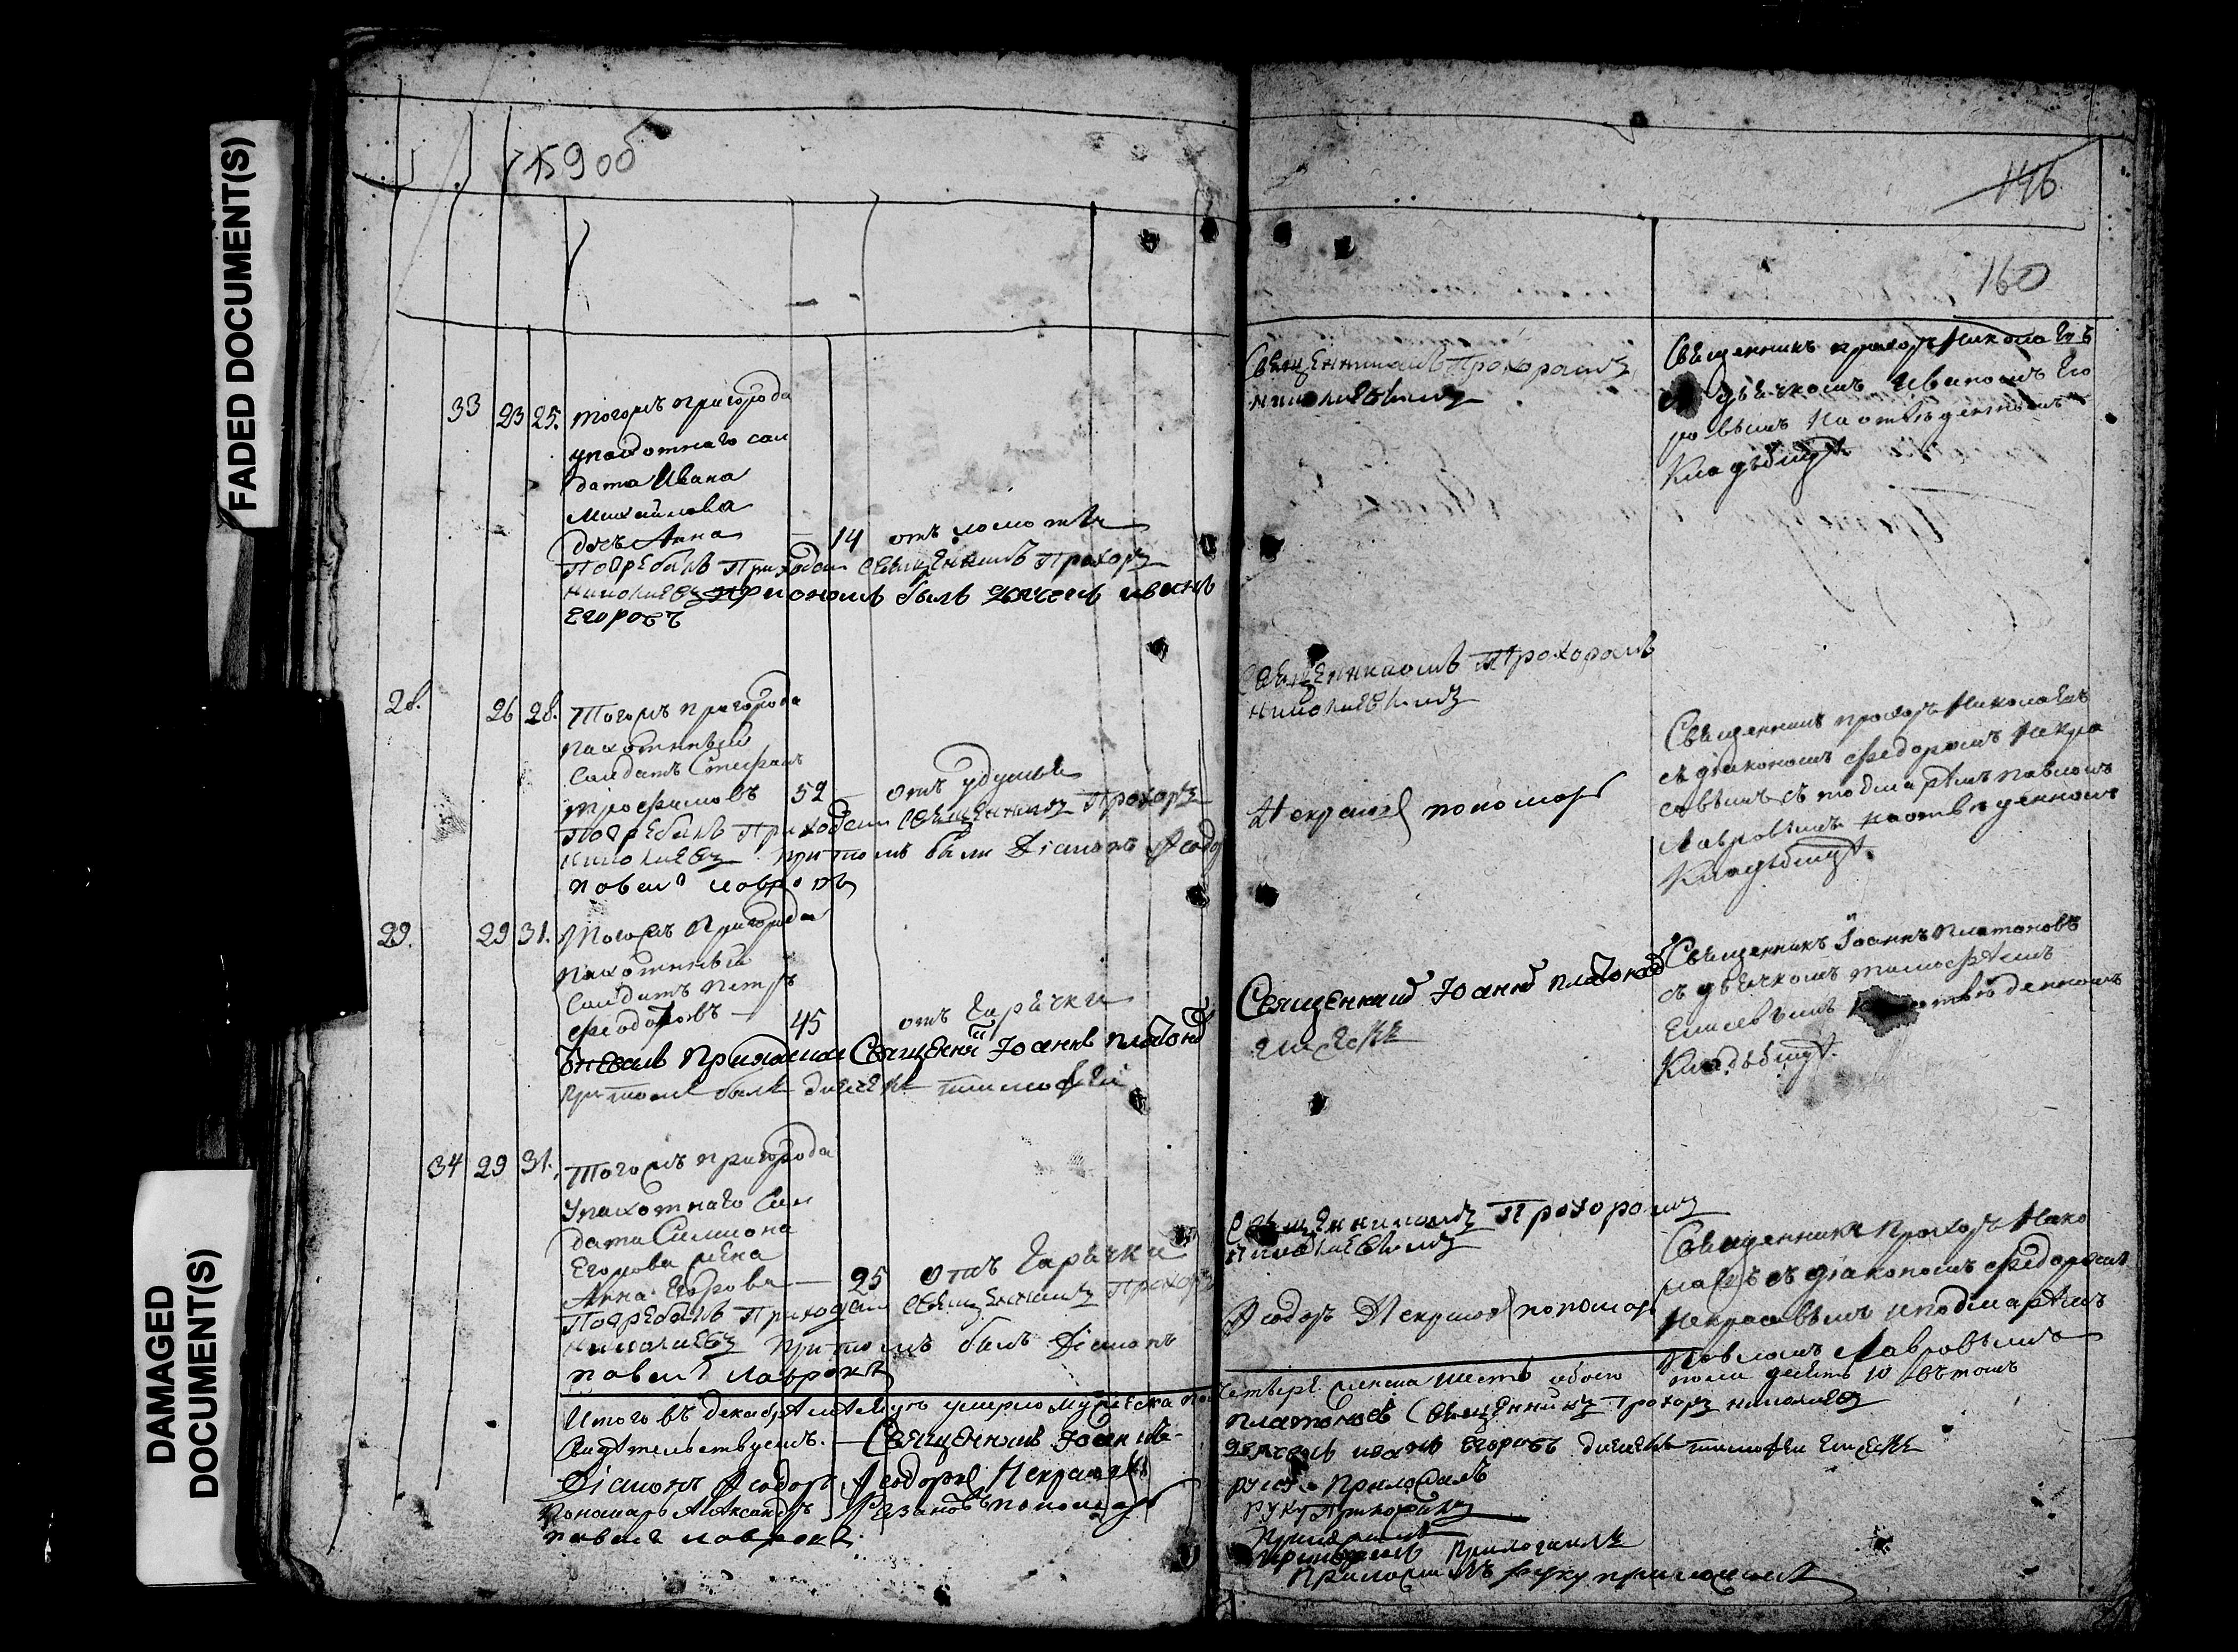 FADED DOCUMENT(S)
DAMAGED
DOCUMENT(S)
159 об
33 23 25. Тогожъ пригорода
у пахотнаго сол
дата Ивана
Михайлова
дочь Анна — 14 отъ ломоты
Погребалъ Приходской Священникъ Прохоръ
Николаевъ при ономъ былъ дьячекъ иванъ
Егоровъ
28. 26 28. Тогожъ пригорода
пахотный
Солдатъ Стефанъ
Трофимовъ 52 — отъ удушья
Погребалъ Приходской Священникъ Прохоръ
Николаевъ при томъ были Діаконъ Феодоръ
павелъ лавровъ
29. 29 31. Тогожъ Пригорода
Пахотный
Солдатъ петръ
Феодоровъ — 45 отъ Гарячки
Приходской Священникъ Іоаннъ платоновъ
при томъ былъ дьячекъ тимофей
34 29 31. Тогожъ пригорода
У пахотнаго Сол
дата Симиона
Егорова жена
Анна Егорова — 25 отъ Гарячки
Погребалъ Приходской Священникъ Прохоръ
Николаевъ при томъ былъ Діаконъ
павелъ лавровъ
Итого въ декабрѣ умерло мужеска
Свидѣтельствуемъ. — Священникъ Іоаннъ
Діаконъ Феодоръ Некрасовъ
Пономарь Александръ пономарь
павелъ лавровъ
146
160
Священникомъ Прохоромъ
Николаевымъ
Священникъ прохоръ Николаевъ
съ дьячкомъ Иваномъ Его
ровымъ На отведенномъ
Кладбищѣ
Священникомъ Прохоромъ
Николаевымъ
Некрасовъ пономарь
Священникъ прохоръ Николаевъ
съ діакономъ Федоромъ Некра
совымъ съ пономаремъ павломъ
Лавровымъ на отведенномъ
Кладбищѣ.
Священникъ Іоаннъ платоновъ
Елисеевъ
Священникъ Іоаннъ Платоновъ
съ дьячкомъ тимофеемъ
Елисеевымъ на отведенномъ
Кладбищѣ.
Священникомъ Прохоромъ
Николаевымъ
Феодоръ Некрасовъ пономарь
Священникъ Прохоръ Нико
лаевъ съ діакономъ Федоромъ
Некрасовымъ и пономаремъ
Павломъ Лавровымъ
четыре женска шесть обоего пола десять 10 въ томъ
платоновъ Священникъ Прохоръ николаевъ
дьячекъ иванъ Егоровъ дьячекъ тимофей Елисеевъ
руку Приложилъ
руку Приложилъ
Приложилъ
Приложилъ
Приложилъ руку приложилъ